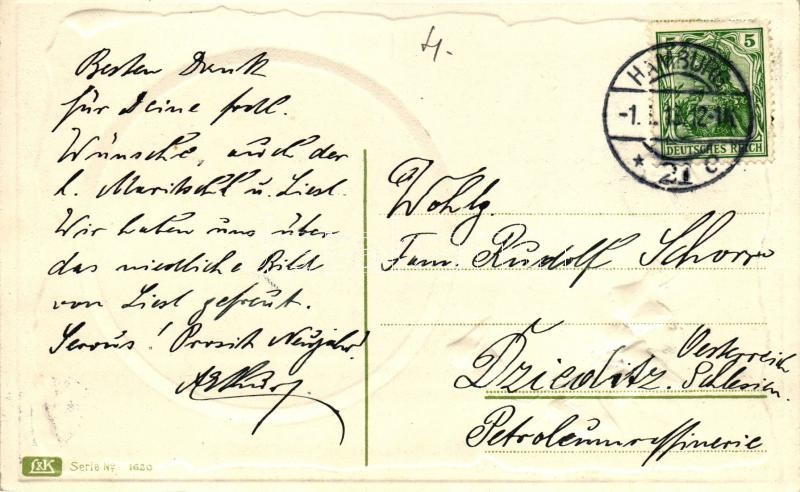 4.
Besten Dank
für Deine frdl.
Wünsche, auch der
l. Maritschl u. Liesl.
Wir haben uns über
das niedliche Bild
von Liesl gefreut.
Servus! Prosit Neujahr!
HAMBURG
-1. 12-1
* 21 c
5 5
DEUTSCHES REICH
Wohlg.
Fam. Rudolf Schorr
Dzieditz. Oesterreich
Schlesien.
Petroleumraffinerie
L&K Serie No 1620